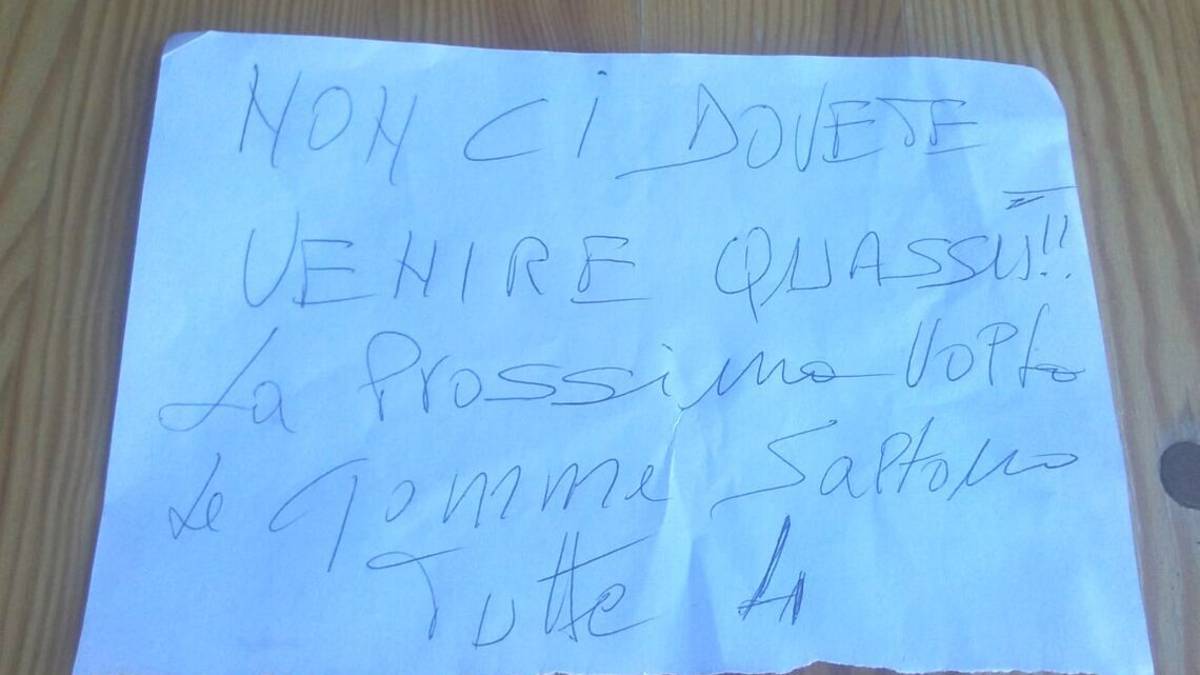 NON CI DOVETE
VENIRE QUASSÙ!!
La Prossima Volta
Le Gomme Saltono
Tutte 4